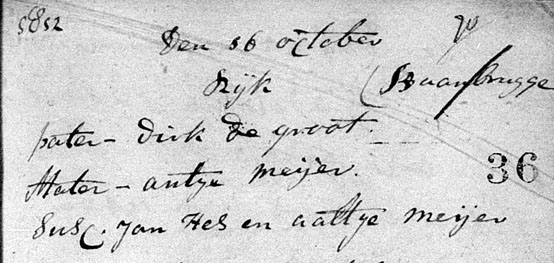 Den 16 october
Rijk (Baanbrugge
pater - dirk de groot.
Mater - antye meijer.
36
Susc. Jan Hes en aaltye meijer